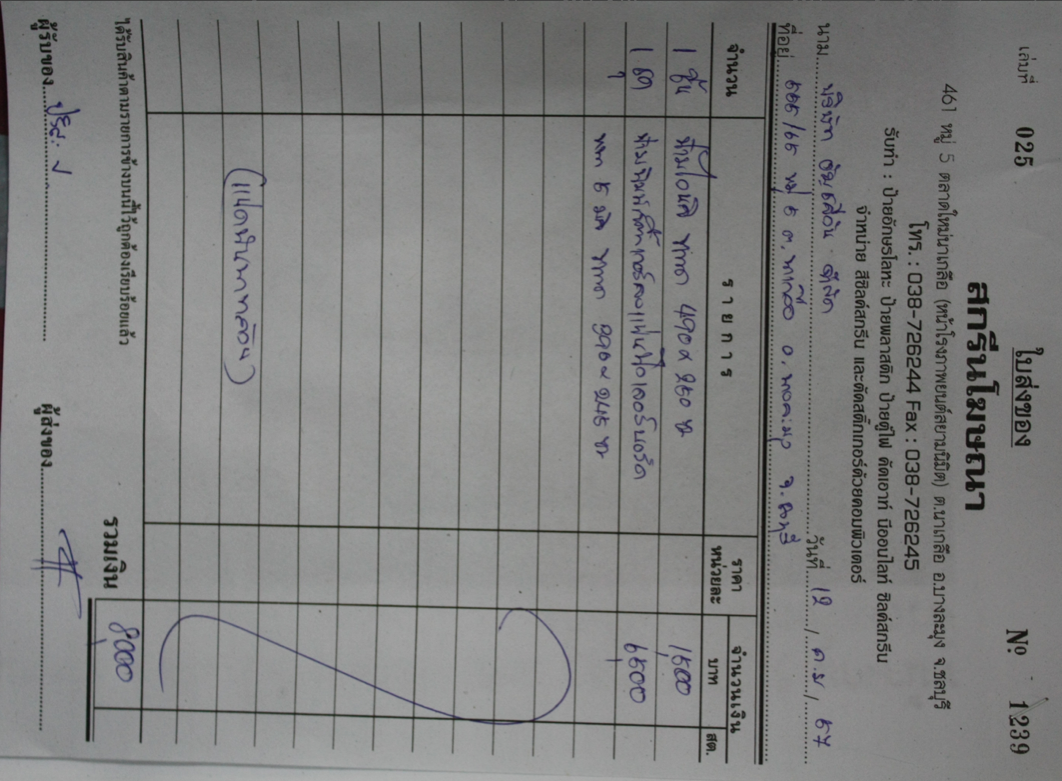 เล่มที่ 025 ใบส่งของ Nº 1239
สกรีนโฆษณา
461 หมู่ 5 ตลาดใหม่นาเกลือ (หน้าโรงภาพยนต์สยามนิมิต) ต.นาเกลือ อ.บางละมุง จ.ชลบุรี
โทร. : 038-726244 Fax : 038-726245
รับทำ : ป้ายอักษรโลหะ ป้ายพลาสติก ป้ายตู้ไฟ คัตเอาท์ นีออนไลท์ ซิลค์สกรีน
จำหน่าย สีซิลค์สกรีน และตัดสติ๊กเกอร์ด้วยคอมพิวเตอร์
วันที่ 12 / ต.ค / 57
นาม บริษัท
ที่อยู่ 555/65 หมู่ 5 ต.นาเกลือ อ.บางละมุง จ.ชลบุรี
จำนวน รายการ ราคาหน่วยละ จำนวนเงิน บาท สต.
1 ชิ้น ป้ายไวนิล ขนาด 490 x 250 ซม 1,500
1 ชุด ป้ายพิมพ์สติ๊กเกอร์ลงแผ่นฟิวเจอร์บอร์ด 6,500
หนา 5 มิล ขนาด x 245 ซม
รวมเงิน 8,000
ได้รับสินค้าตามรายการข้างบนนี้ไว้ถูกต้องเรียบร้อยแล้ว
ผู้รับของ ผู้ส่งของ